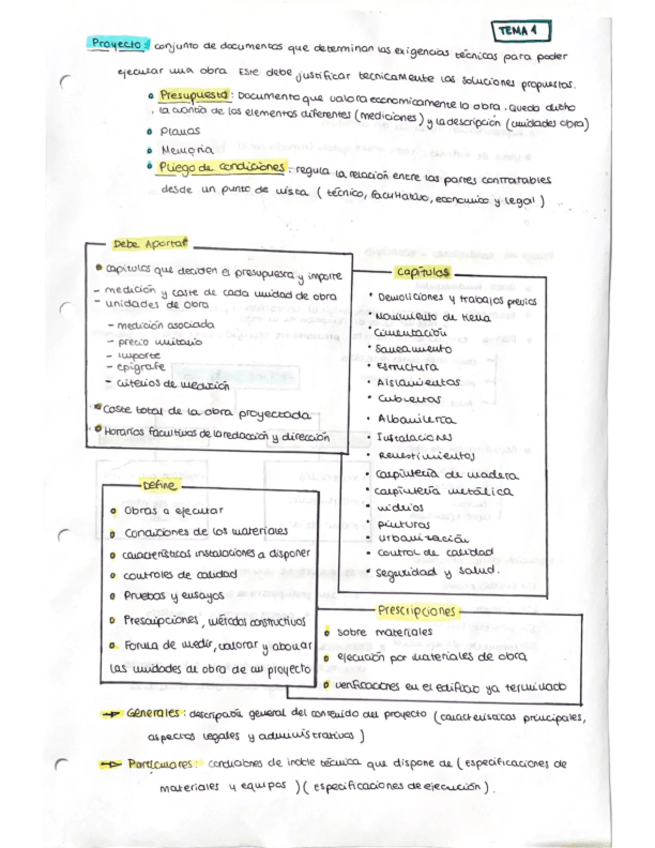 TEMA 1
Proyecto: conjunto de documentos que determinan las exigencias técnicas para poder
ejecutar una obra. Este debe justificar tecnicamente las soluciones propuestas.
Presupuesto: Documento que valora economicamente la obra. Queda dicho
la cuantía de los elementos diferentes (mediciones) y la descripción (unidades obra)
Planos
Memoria
Pliego de condiciones: regula la relación entre las partes contratables
desde un punto de vista (técnico, facultativo, economico y legal)
Debe Aportar
capitulos que deciden el presupuesto y importe
- medición y coste de cada unidad de obra
- unidades de obra
- medición asociada
- precio unitario
- importe
- epígrafe
- criterios de medición
Coste total de la obra proyectada
Horarios facultivos de la redacción y dirección
Capítulos
Demoliciones y trabajos previos
Movimiento de tierra
Cimentación
Saneamiento
Estructura
Aislamientos
Cubiertas
Albañileria
Instalaciones
Revestimientos
Carpintería de madera
Carpintería metálica
vidrios
pinturas
urbanización
control de calidad
Seguridad y salud.
Define
Obras a ejecutar
Condiciones de los materiales
características instalaciones a disponer
controles de calidad
Pruebas y ensayos
Prescripciones, métodos constructivos
Forma de medir, valorar y abonar
las unidades de obra de un proyecto
Prescripciones
sobre materiales
ejecución por materiales de obra
verificaciones en el edificio ya terminado
Generales: general del contenido del proyecto (características principales,
aspectos legales y administrativos)
Particulares: condiciones de indole técnica que dispone de (especificaciones de
materiales y equipos) (especificaciones de ejecución).